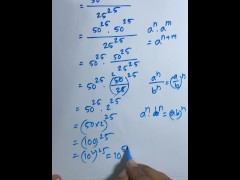 = 50
25²⁵
= 50²⁵ . 50²⁵ / 25²⁵
aⁿ . aᵐ
= aⁿ⁺ᵐ
= 50²⁵ . 50²⁵ / 25²⁵
= 50²⁵ . (50/25)²⁵
aⁿ/bⁿ = (a/b)ⁿ
= 50²⁵ . 2²⁵
aⁿ . bⁿ = (ab)ⁿ
= (50×2)²⁵
= (100)²⁵
= (10²)²⁵ = 10⁵